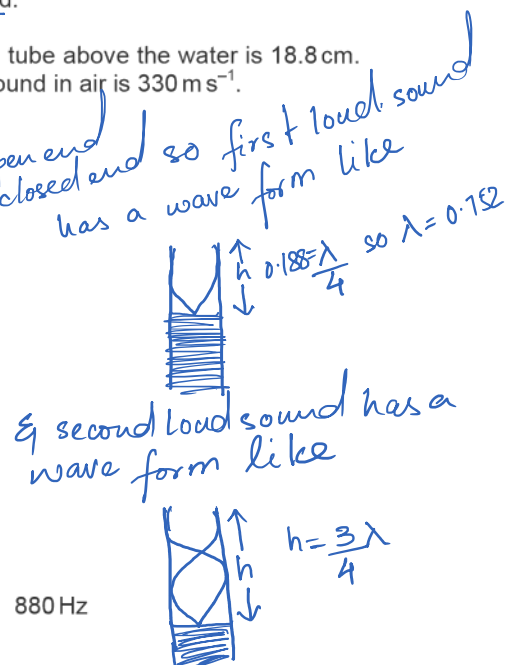 tube above the water is 18.8 cm.
in air is 330 m s⁻¹.
end
closed end so first loud sound
has a wave form like
h 0.188=λ/4 so λ=0.752
& second loud sound has a
wave form like
h h=3λ/4
880 Hz